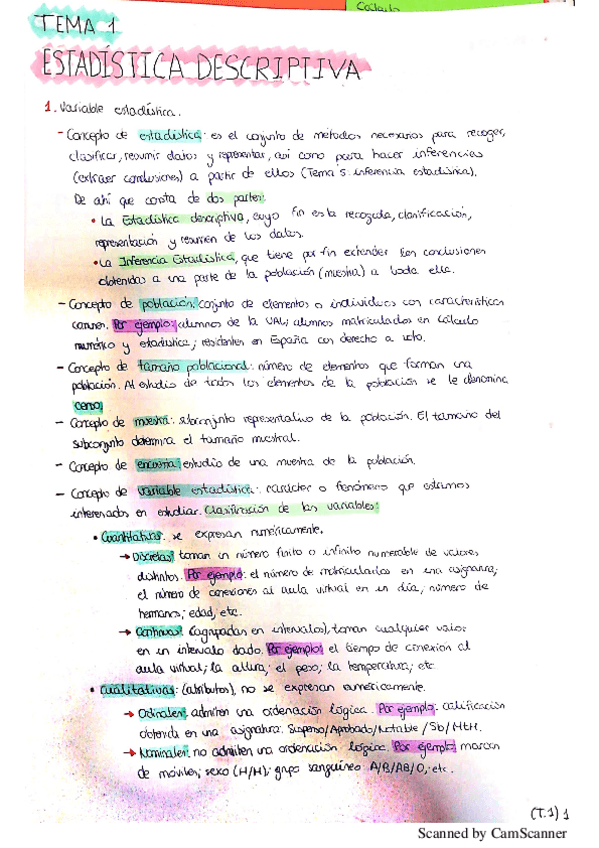 Cálculo
TEMA 1
ESTADÍSTICA DESCRIPTIVA
1. Variable estadística.
- Concepto de estadística: es el conjunto de métodos necesarios para recoger,
clasificar, resumir datos y representar, así como para hacer inferencias
(extraer conclusiones) a partir de ellos (Tema 5 inferencia estadística).
De ahí que consta de dos partes:
• La Estadística descriptiva, cuyo fin es la recogida, clasificación,
representación y resumen de los datos.
• La Inferencia Estadística, que tiene por fin extender las conclusiones
obtenidas a una parte de la población (muestra) a toda ella.
- Concepto de población: conjunto de elementos o individuos con características
comunes. Por ejemplo: alumnos de la UAL; alumnos matriculados en cálculo
numérico y estadística; residentes en España con derecho a voto.
- Concepto de tamaño poblacional: número de elementos que forman una
población. Al estudio de todos los elementos de la población se le denomina
censo.
- Concepto de muestra: subconjunto representativo de la población. El tamaño del
subconjunto determina el tamaño muestral.
- Concepto de encuesta: estudio de una muestra de la población.
- Concepto de variable estadística: carácter o fenómeno que estamos
interesados en estudiar. Clasificación de las variables:
• Cuantitativas: se expresan numéricamente.
→ Discretas: toman un número finito o infinito numerable de valores
distintos. Por ejemplo: el número de matriculados en una asignatura;
el número de conexiones al aula virtual en un día; número de
hermanos; edad, etc.
→ Continuas: (agrupadas en intervalos), toman cualquier valor
en un intervalo dado. Por ejemplo: el tiempo de conexión al
aula virtual; la altura; el peso; la temperatura; etc.
• Cualitativas: (atributos), no se expresan numéricamente.
→ Ordinales: admiten una ordenación lógica. Por ejemplo: calificación
obtenida en una asignatura: Suspenso/Aprobado/Notable/Sb/MtH.
→ Nominales: no admiten una ordenación lógica. Por ejemplo: marcas
de móviles; sexo (H/M); grupo sanguíneo A/B/AB/O; etc.
(T.1) 1
Scanned by CamScanner